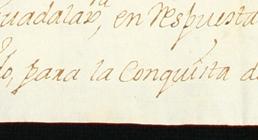 uadalax.ra, en respuesta
do, para la Conquista de